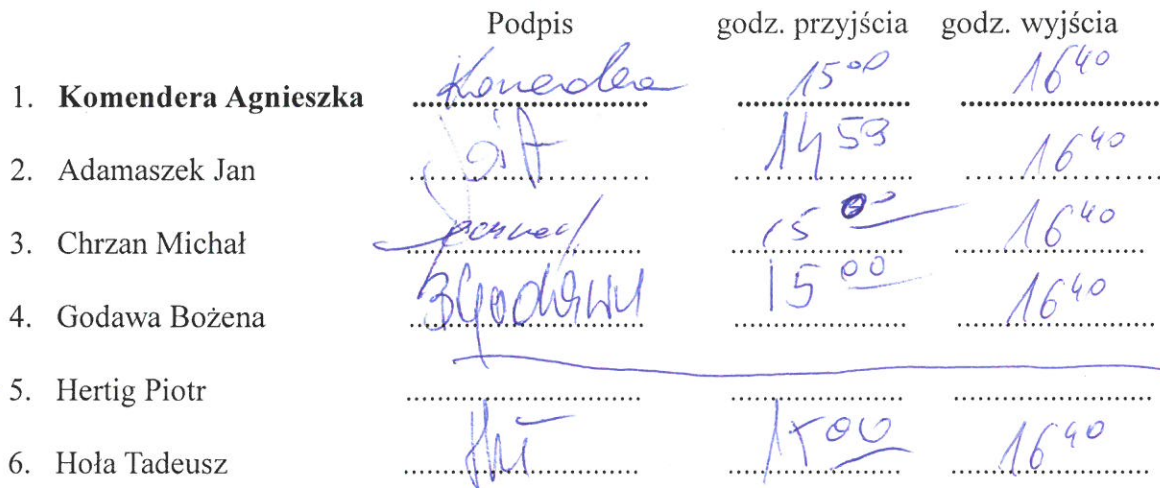 Podpis godz. przyjścia godz. wyjścia
1. Komendera Agnieszka Komendera 15⁰⁰ 16⁴⁰
2. Adamaszek Jan 14⁵⁹ 16⁴⁰
3. Chrzan Michał 15⁰⁰ 16⁴⁰
4. Godawa Bożena BGodawa 15⁰⁰ 16⁴⁰
5. Hertig Piotr
6. Hoła Tadeusz 15⁰⁰ 16⁴⁰